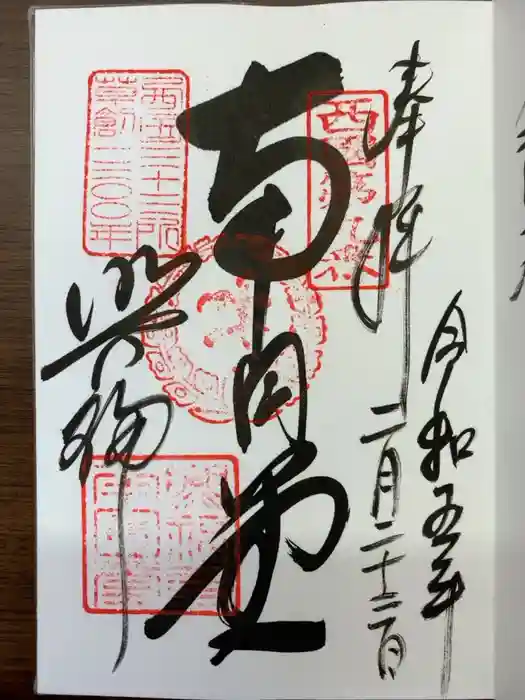 令和五年
二月二十二日
奉拝
西國第九番
南円堂
西国三十三所
草創一三〇〇年
興福寺